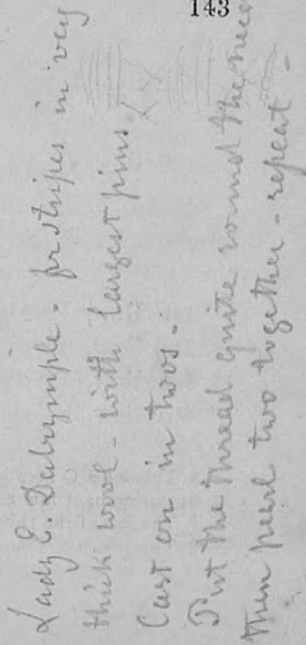 143
Lady E. Dalrymple. for stripes in very
thick wool - with largest pins.
Cast on in twos.
Put the thread quite round the
then pearl two together - repeat -